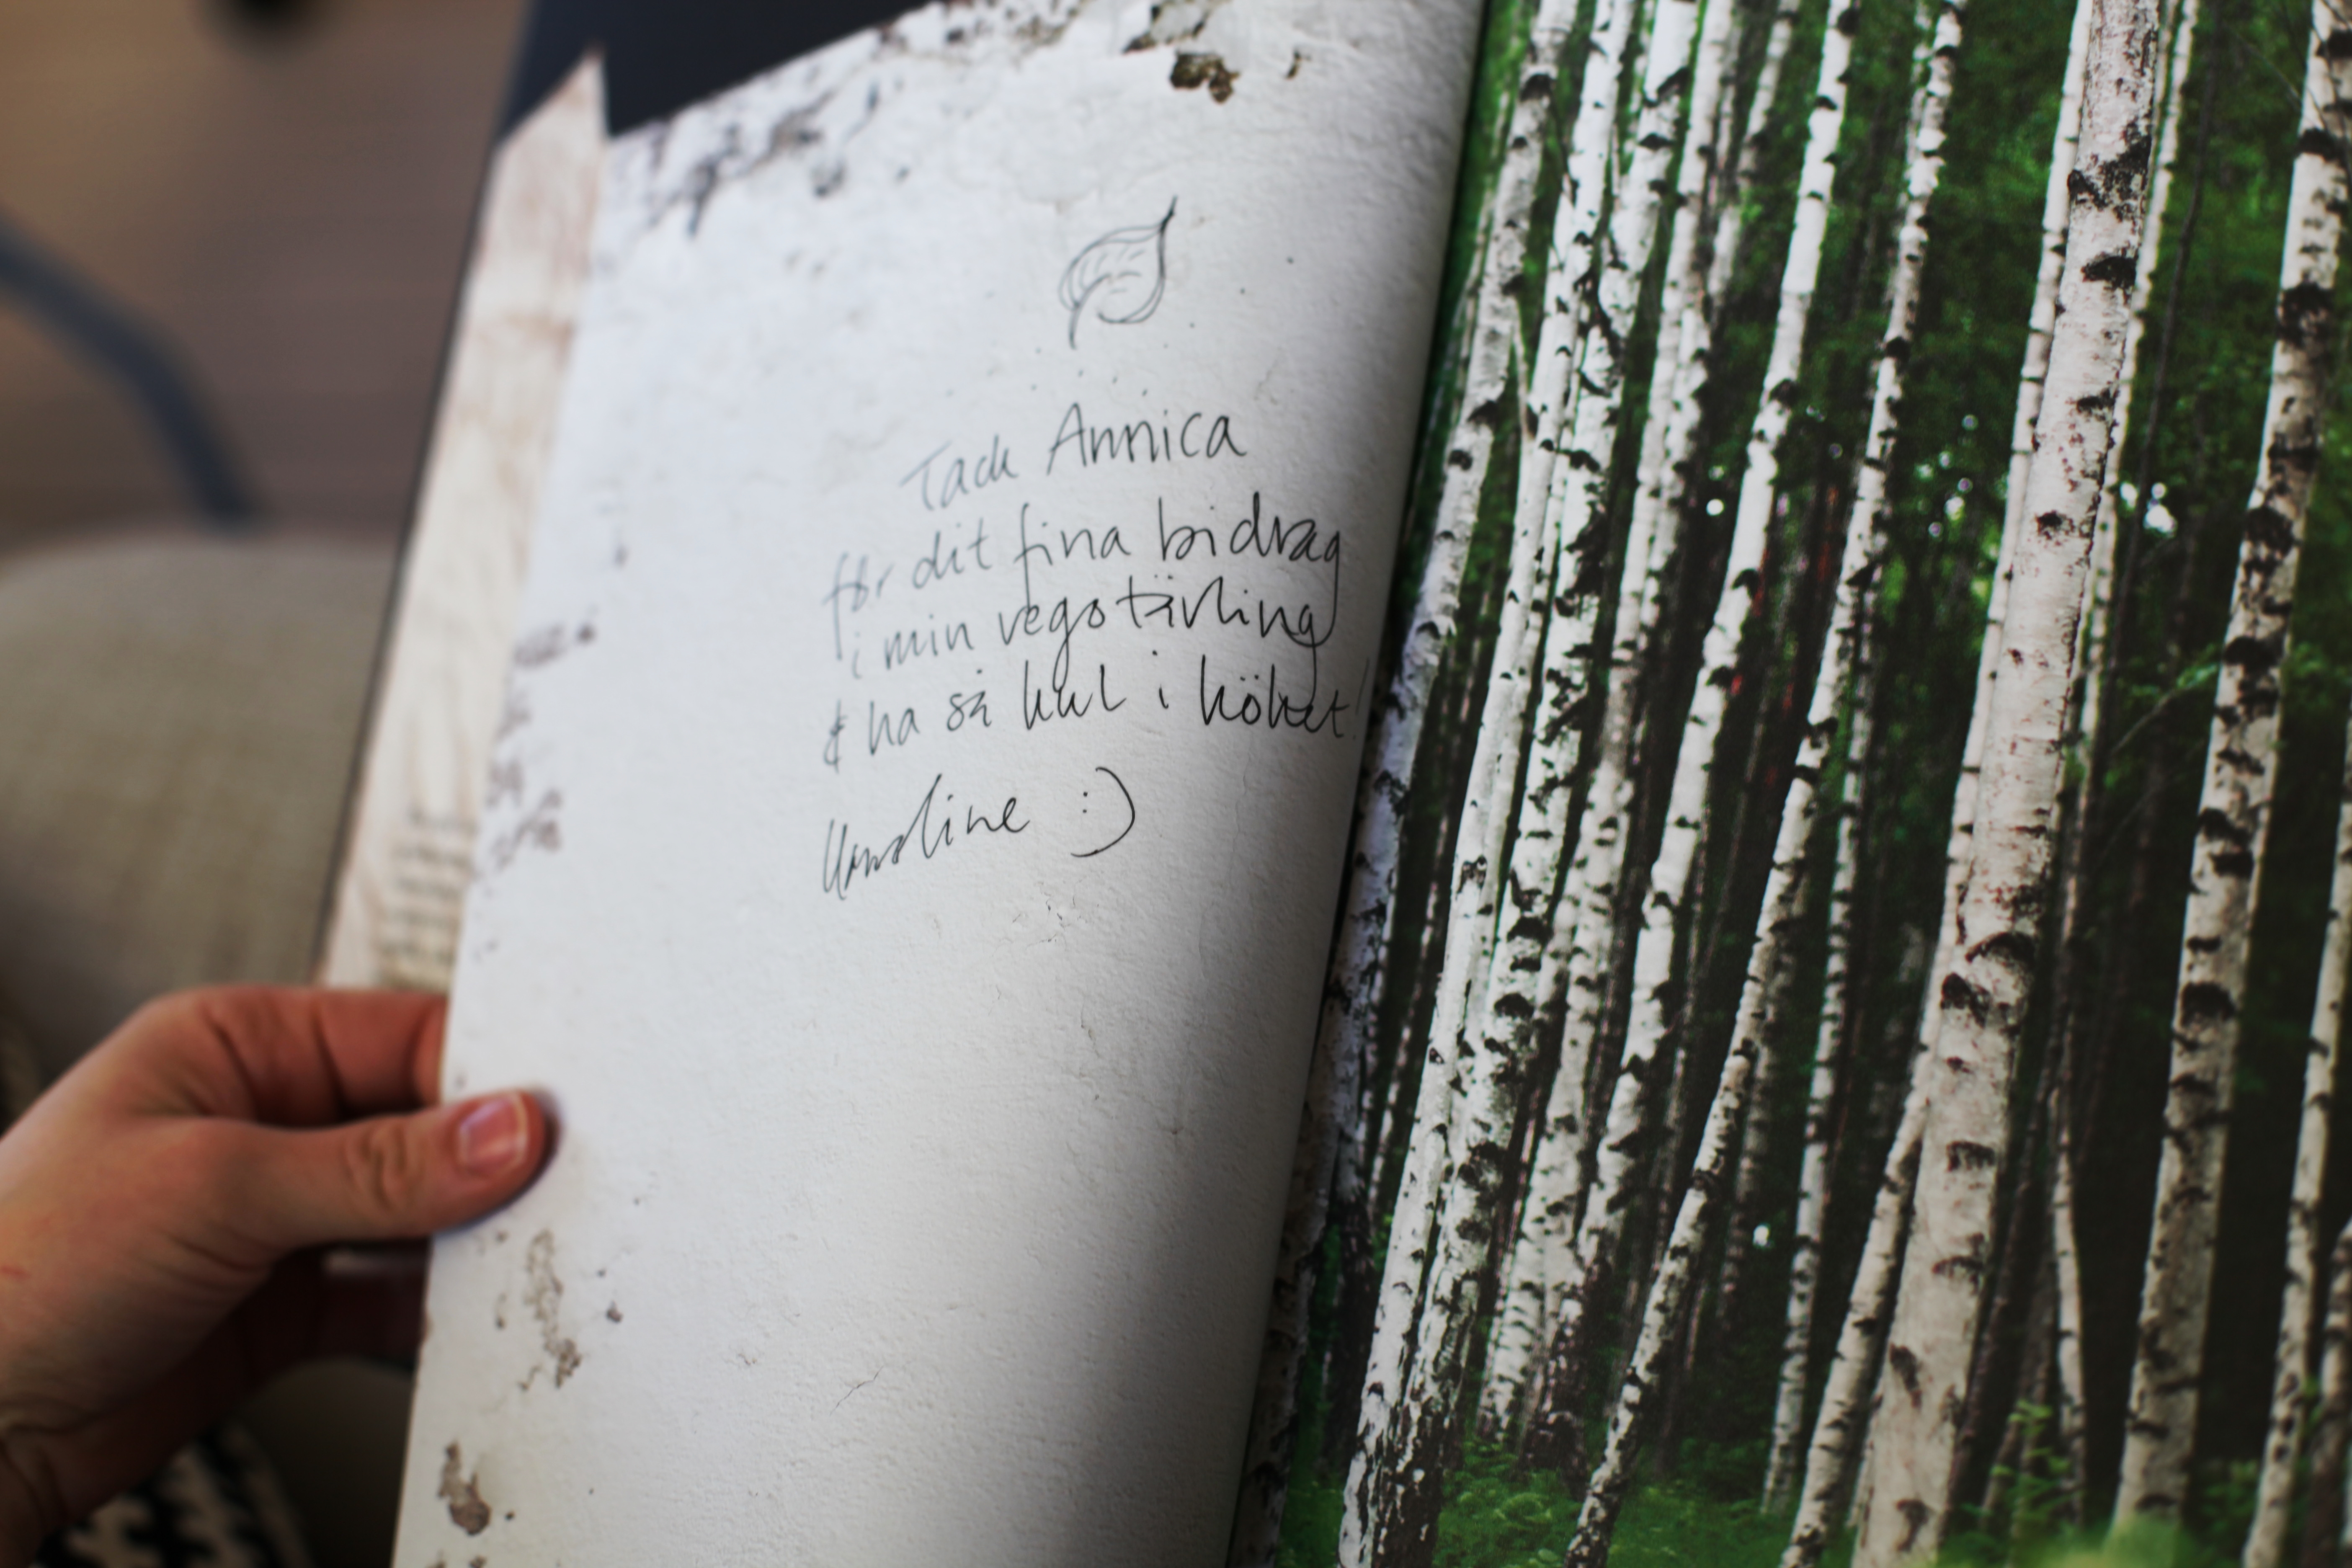 Tack Annica
för dit fina bidrag
i min vegotävling
& ha så kul i köket!
Karoline :)